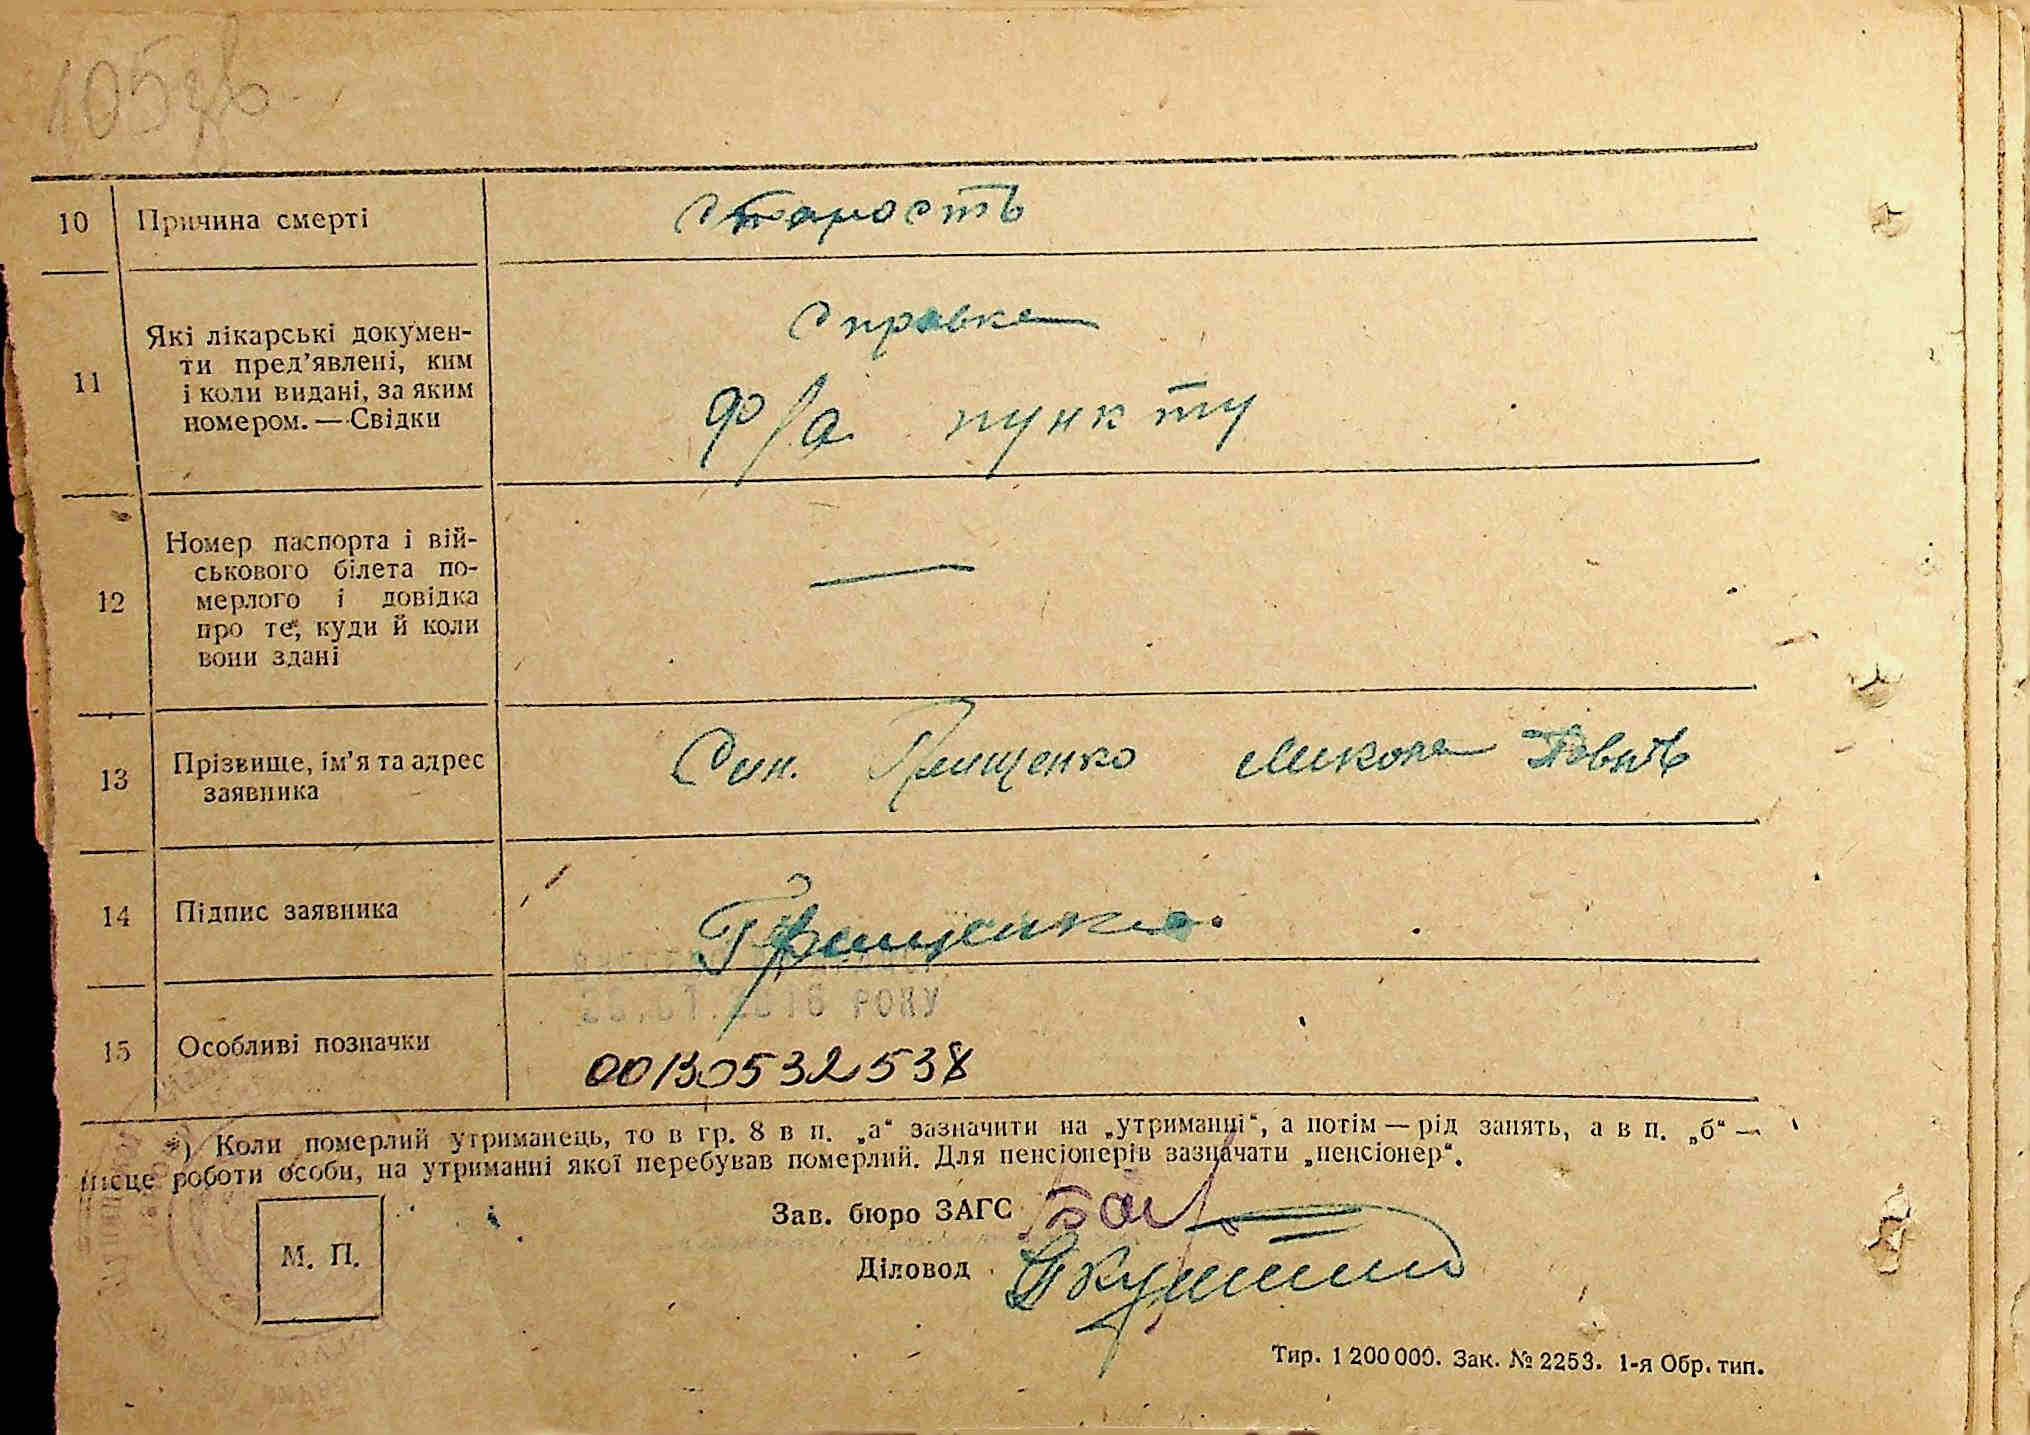 10 Причина смерті Старость
Справка
11 Які лікарські докумен-
ти пред’явлені, ким
і коли видані, за яким
номером. — Свідки
ф/а пункту
12 Номер паспорта і вій-
ськового білета по-
мерлого і довідка
про те, куди й коли
вони здані
—
13 Прізвище, ім’я та адрес
заявника
Син. Микола
14 Підпис заявника
РОКУ
15 Особливі позначки
00130532538
*) Коли померлий утриманець, то в гр. 8 в п. „а“ зазначити на „утриманні“, а потім — рід занять, а в п. „б“ —
місце роботи особи, на утриманні якої перебував померлий. Для пенсіонерів зазначати „пенсіонер“.
Зав. бюро ЗАГС
М. П.
Діловод
Тир. 1 200 000. Зак. № 2253. 1-я Обр. тип.